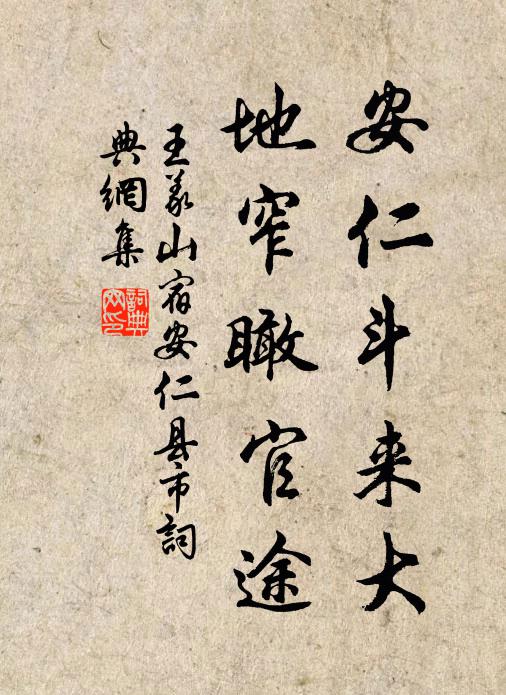 安仁斗来大
地窄瞰官途
王义山宿安仁县市詞
典網集
詞典網印